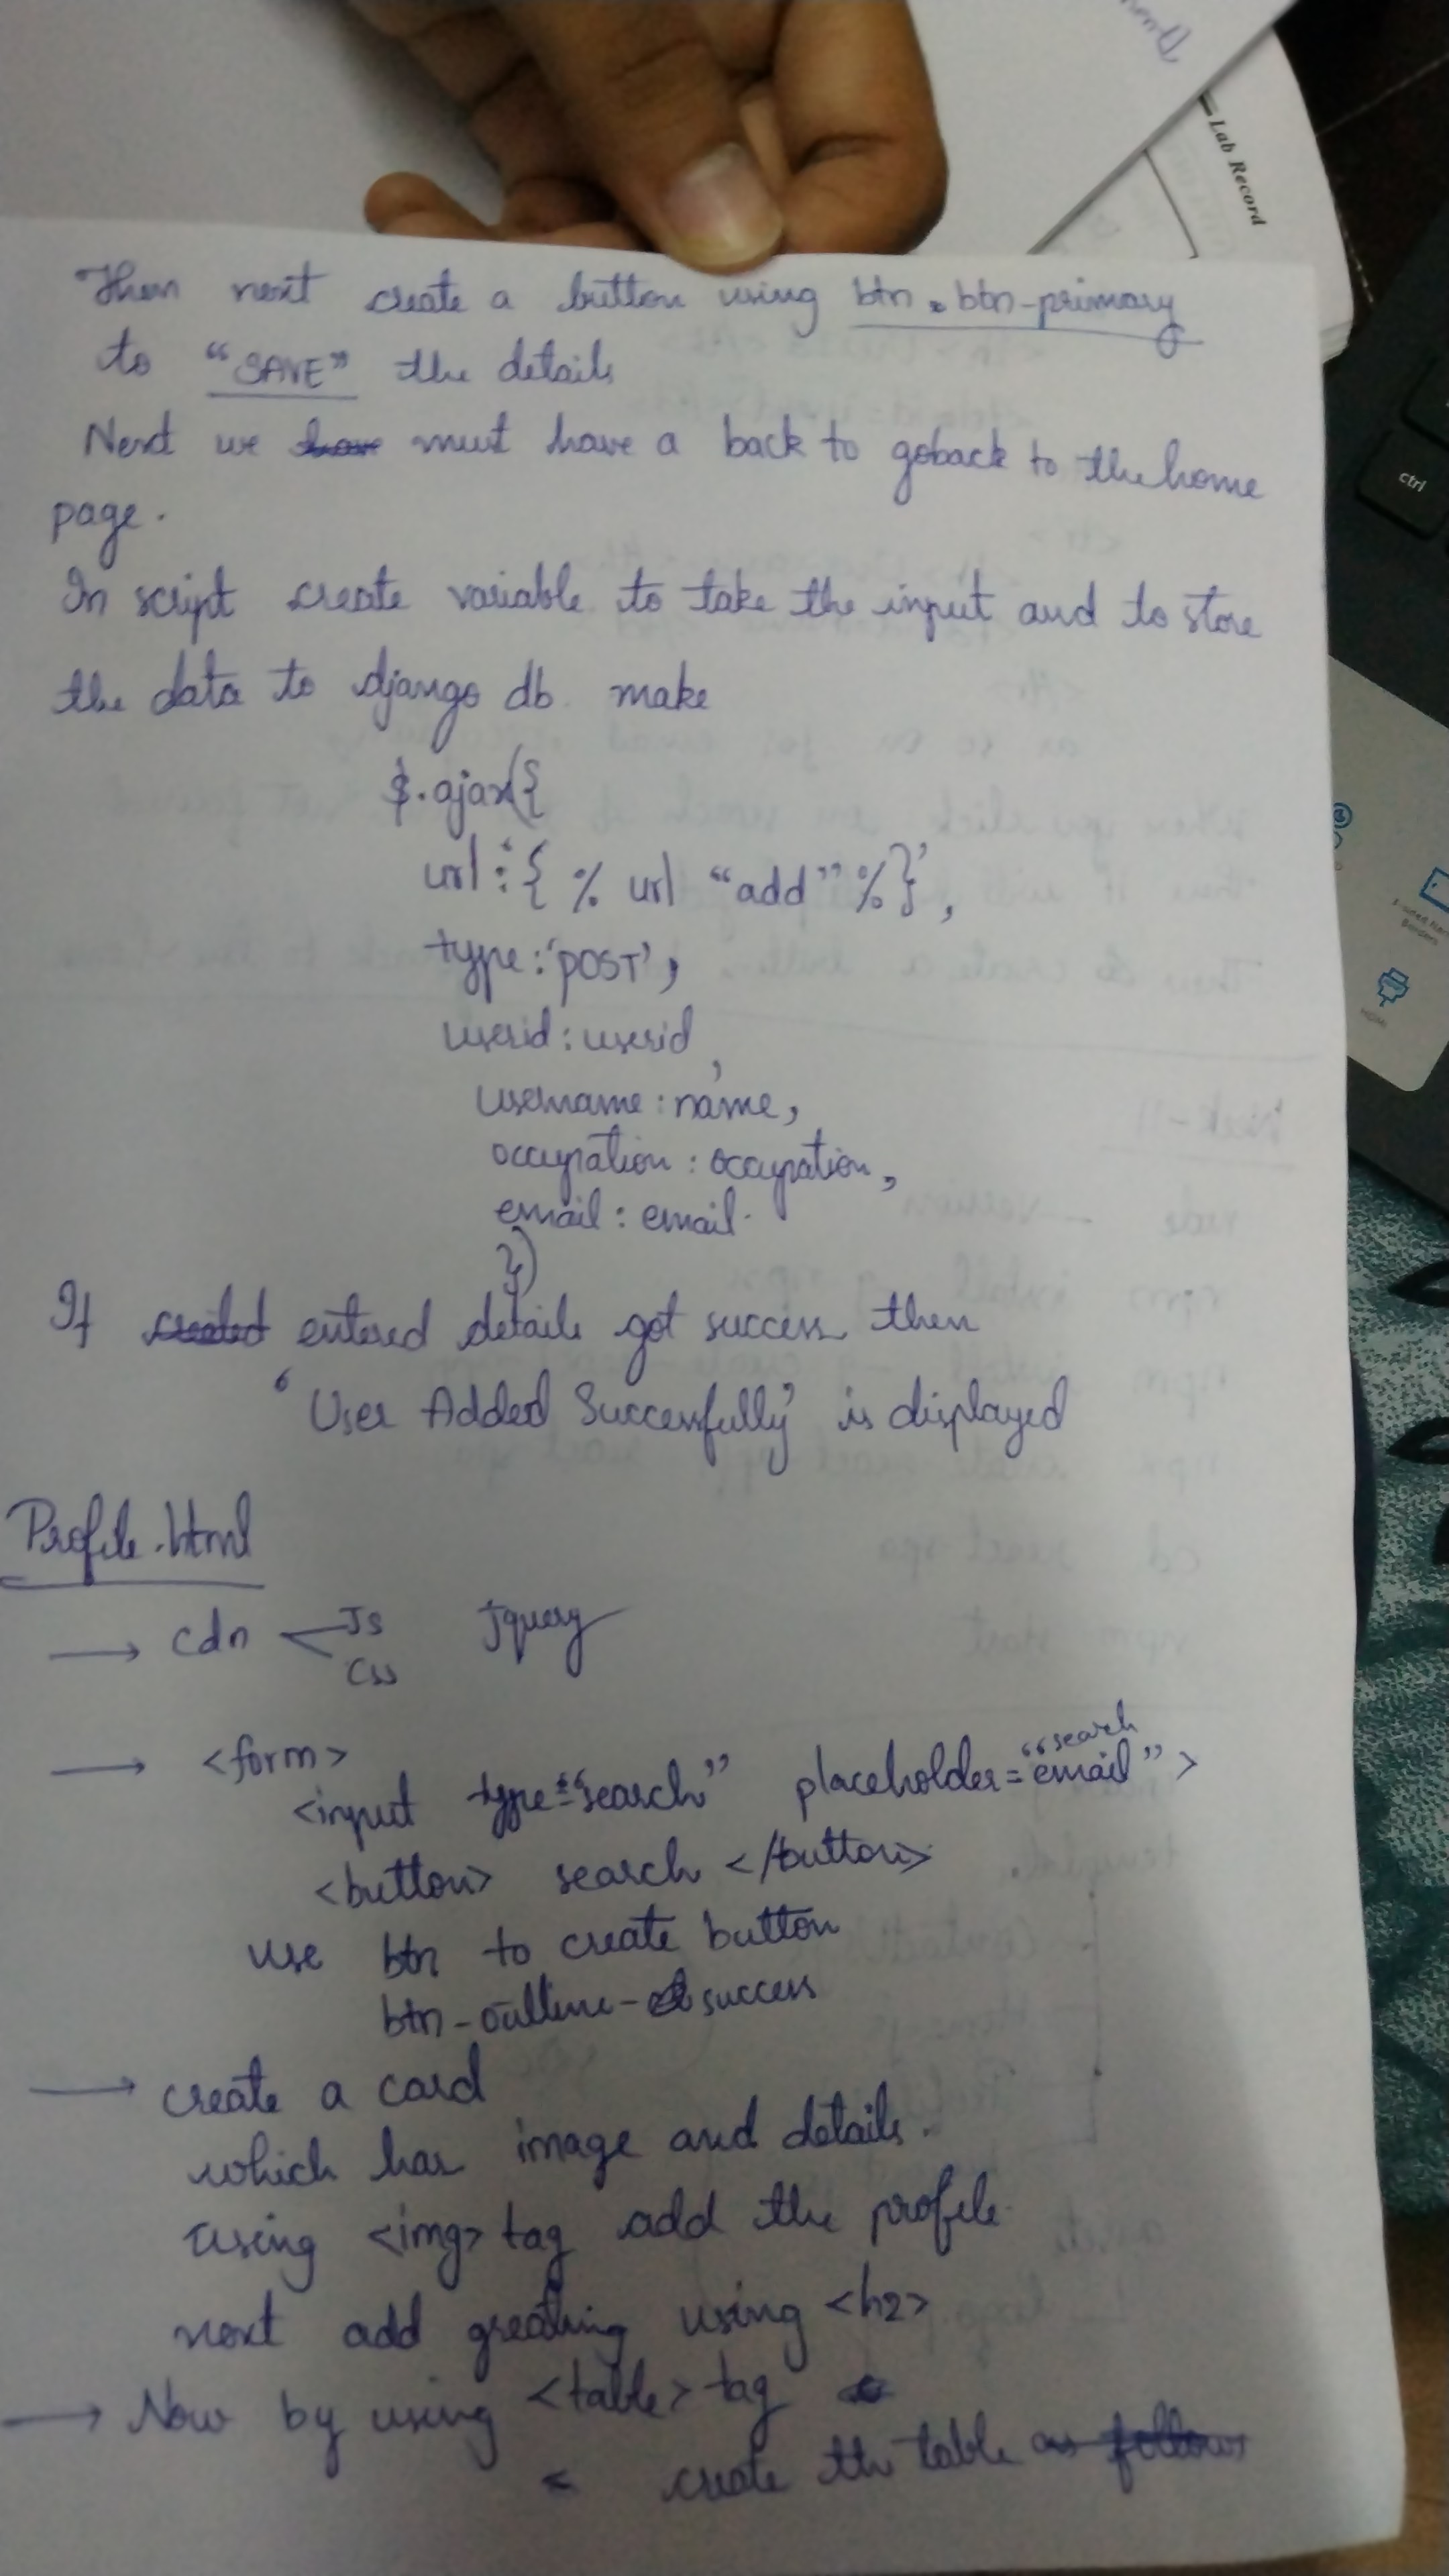 Lab Record
ctrl
Then next create a button using btn btn-primary
to "SAVE" the details
Next we have must have a back to goback to the home
page.
In script create variable to take the input and to store
the data to django db make
$.ajax({
url:'{ % url "add" %}',
type:'POST',
userid: userid,
username: name,
occupation: occupation,
email: email.
})
If created entered details got success then
'User Added Successfully' is displayed
Profile.html
→ cdn JS jquery
css
→ <form>
<input type="search" placeholder="search email">
<button> search </button>
use btn to create button
btn-outline-success
→ create a card
which has image and details.
using <img> tag add the profile.
next add greating using <h2>
→ Now by using <table> tag
create the table as follows